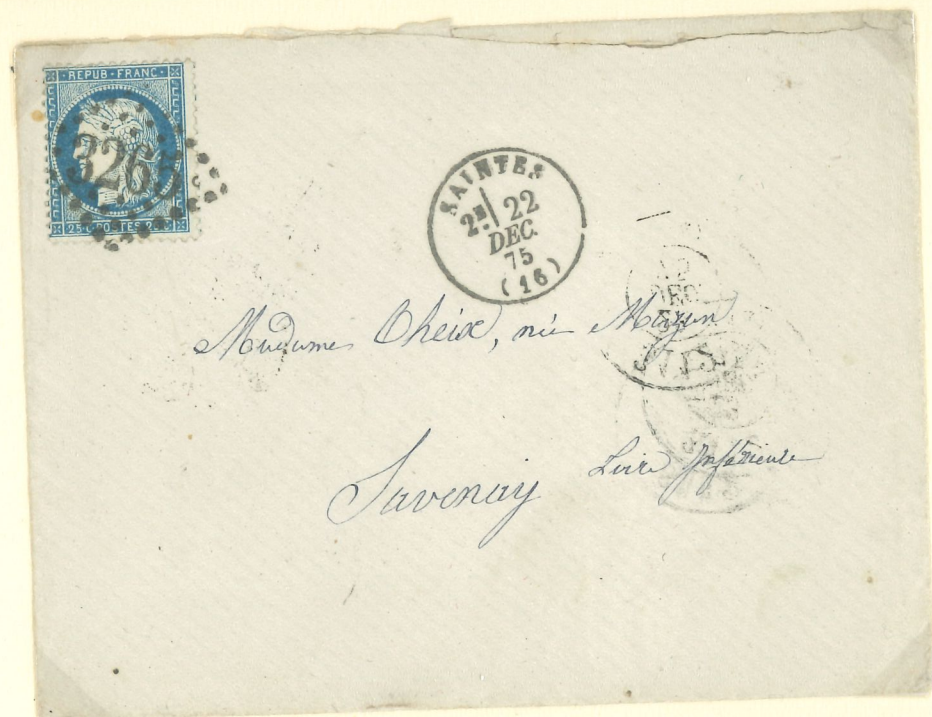 REPUB·FRANC·
326
25·c·POSTES·25·c
SAINTES
2E/ 22
DEC.
75
(16)
DEC
Madame Cheix, née Mazun
Savenay Loire Inférieure